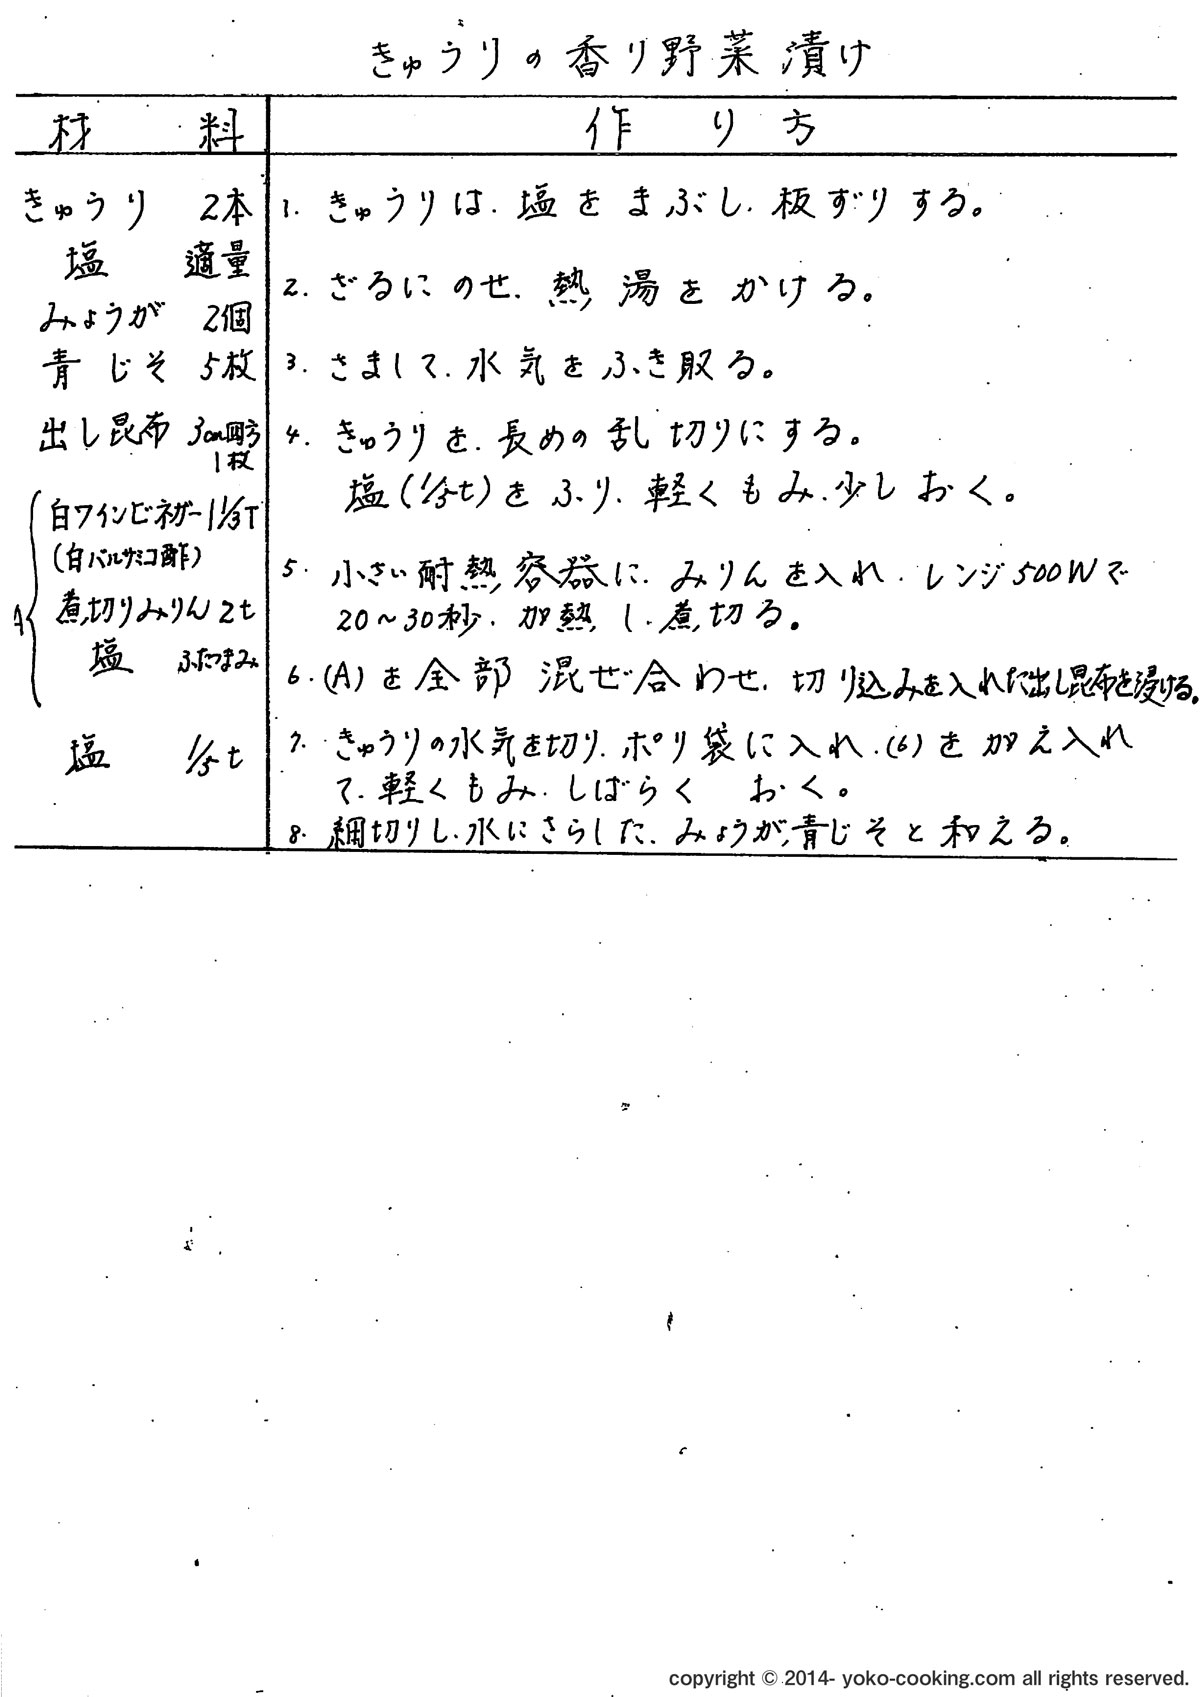 きゅうりの香り野菜漬け
材料
作り方
きゅうり 2本
塩 適量
みょうが 2個
青じそ 5枚
出し昆布 3cm四方
1枚
A
白ワインビネガー 1 1/3T
(白バルサミコ酢)
煮切りみりん 2t
塩 ふたつまみ
塩 1/5t
1. きゅうりは、塩をまぶし、板ずりする。
2. ざるにのせ、熱湯をかける。
3. さまして、水気をふき取る。
4. きゅうりを、長めの乱切りにする。
塩(1/5t)をふり、軽くもみ、少しおく。
5. 小さい耐熱容器に、みりんを入れ、レンジ500Wで
20~30秒、加熱し、煮切る。
6. (A)を全部混ぜ合わせ、切り込みを入れた出し昆布を浸ける。
7. きゅうりの水気を切り、ポリ袋に入れ、(6)を加え入れ
て、軽くもみ、しばらくおく。
8. 細切りし、水にさらした、みょうが、青じそと和える。
copyright © 2014- yoko-cooking.com all rights reserved.